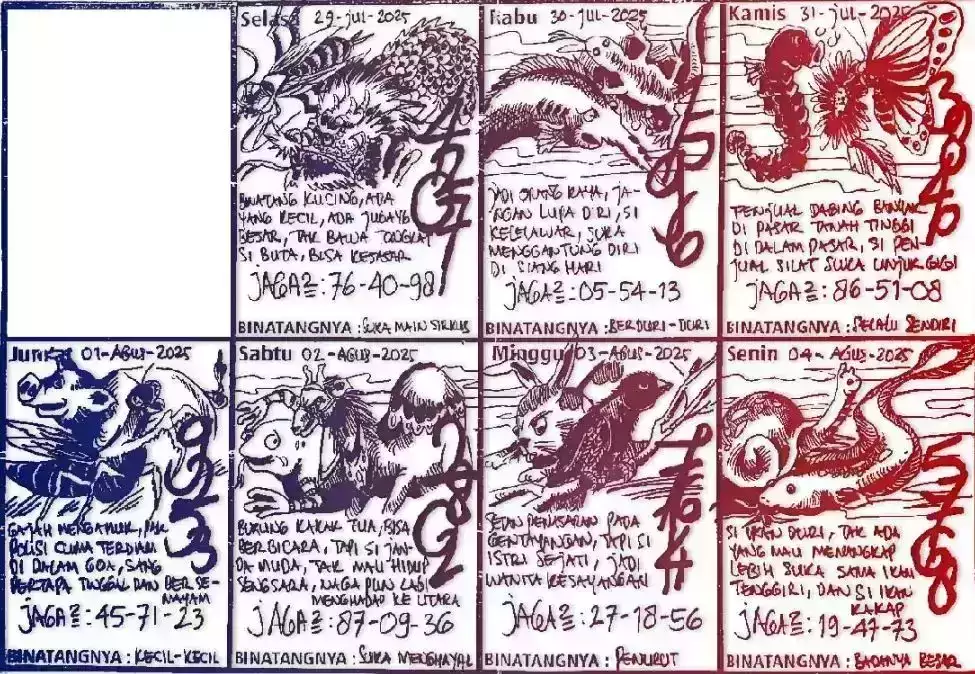 Selasa 29-JUL-2025
BINATANG KUCING, ADA
YANG KECIL, ADA JUGA YG
BESAR, TAK BAWA TONGKAT
SI BUTA, BISA KESASAR
JAGA2: 76-40-98
BINATANGNYA : SUKA MAIN SIRKUS
Rabu 30-JUL-2025
JADI ORANG KAYA, JA-
NGAN LUPA DIRI, SI
KELELAWAR, SUKA
MENGGANTUNG DIRI
DI SIANG HARI
JAGA2: 05-54-13
BINATANGNYA : BERDURI-DURI
Kamis 31-JUL-2025
PENJUAL DAGING BANYAK
DI PASAR TANAH TINGGI
DI DALAM PASAR, SI PEN-
JUAL SILAT SUKA UNJUK GIGI
JAGA2: 86-51-08
BINATANGNYA : SELALU SENDIRI
Jumat 01-AGUS-2025
9323
GAJAH MENGAMUK, PAK
POLISI CUMA TERDIAM
DI DALAM GOA, SANG
PERTAPA TINGGAL DAN BERSE-
MAYAM
JAGA2: 45-71-23
BINATANGNYA : KECIL-KECIL
Sabtu 02-AGUS-2025
BURUNG KAKAK TUA, BISA
BERBICARA, TAPI SI JAN-
DA MUDA, TAK MAU HIDUP
SENGSARA, NAGA PUN LAGI
MENGHADAP KE UTARA
JAGA2: 87-09-36
BINATANGNYA : SUKA MENGHAYAL
Minggu 03-AGUS-2025
SETAN PENASARAN PADA
GENTAYANGAN, TAPI SI
ISTRI SEJATI, JADI
WANITA KESAYANGAN
JAGA2: 27-18-56
BINATANGNYA : PENURUT
Senin 04-AGUS-2025
5768
SI IKAN DURI, TAK ADA
YANG MAU MENANGKAP
LEBIH SUKA SAMA IKAN
TENGGIRI, DAN SI IKAN
KAKAP
JAGA2: 19-47-73
BINATANGNYA : BADANYA BESAR